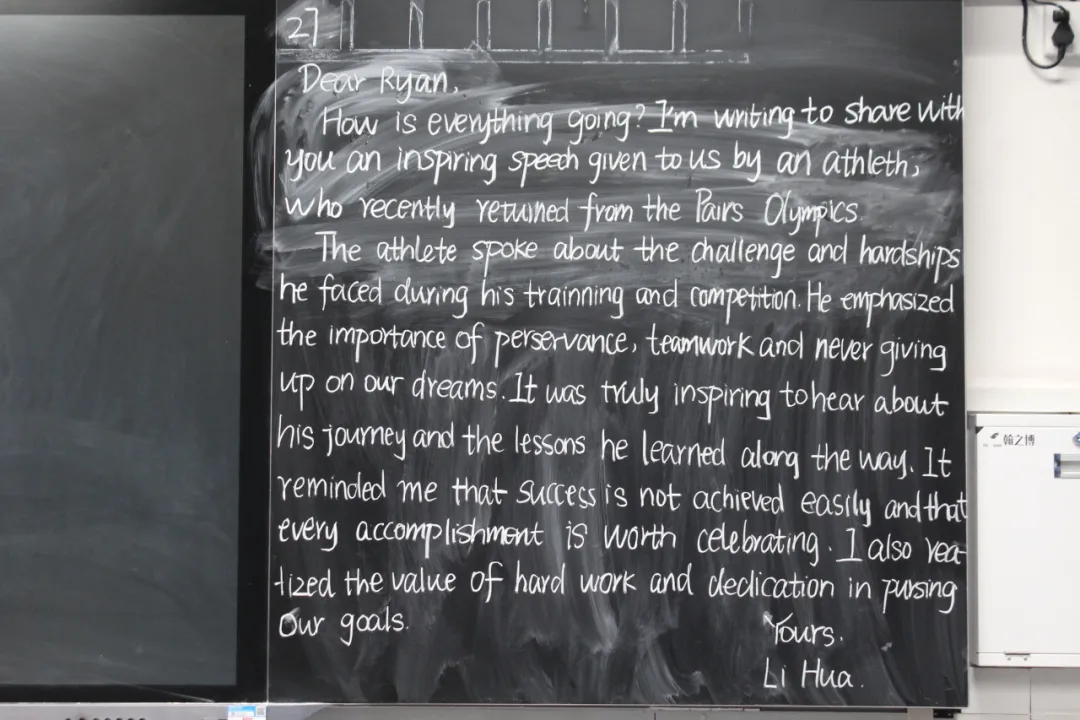 27
Dear Ryan,
How is everything going? I'm writing to share with
you an inspiring speech given to us by an athleth,
who recently retuined from the Pairs Olympics.
The athlete spoke about the challenge and hardships
he faced during his trainning and competition. He emphasized
the importance of perservance, teamwork and never giving
up on our dreams. It was truly inspiring to hear about
his journey and the lessons he learned along the way. It
reminded me that success is not achieved easily and that
every accomplishment is worth celebrating. I also rea-
lized the value of hard work and dedication in pursing
our goals.
Yours.
Li Hua.
翰之博